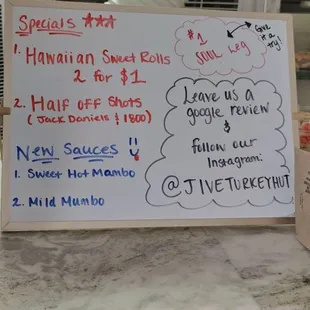 Specials ***
1. Hawaiian Sweet Rolls
2 for $1
2. Half off Shots
(Jack Daniels $ 1800)
New Sauces !!
1. Sweet Hot Mambo
2. Mild Mumbo
#1
SOUL Leg
Give it a try!
Leave us a
google review
&
follow our
Instagram:
@JIVETURKEYHUT